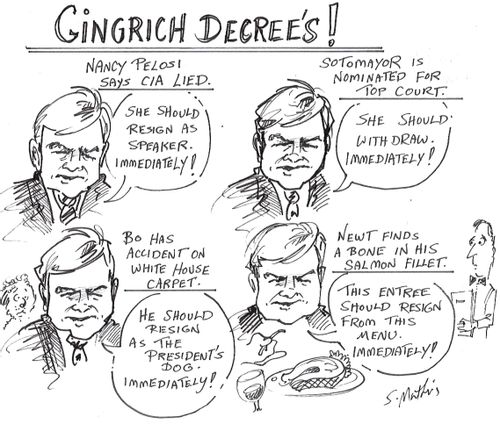 GINGRICH DECREE'S!
NANCY PELOSI
SAYS CIA LIED.
SHE SHOULD
RESIGN AS
SPEAKER.
IMMEDIATELY!
SOTOMAYOR IS
NOMINATED FOR
TOP COURT.
SHE SHOULD
WITHDRAW.
IMMEDIATELY!
BO HAS
ACCIDENT ON
WHITE HOUSE
CARPET.
HE SHOULD
RESIGN
AS THE
PRESIDENT'S
DOG.
IMMEDIATELY!
NEWT FINDS
A BONE IN HIS
SALMON FILLET.
THIS ENTREE
SHOULD RESIGN
FROM THIS
MENU.
IMMEDIATELY!
S. Mathis